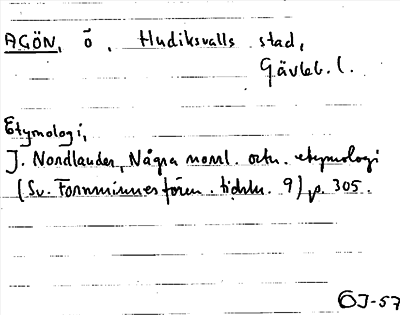 AGÖN, ö, Hudiksvalls stad,
Gävleb. l.
Etymologi,
J. Nordlander, Några norrl. ortn. etymologi
(Sv. Fornminnesfören. tidskr. 9) p. 305.
OJ-57